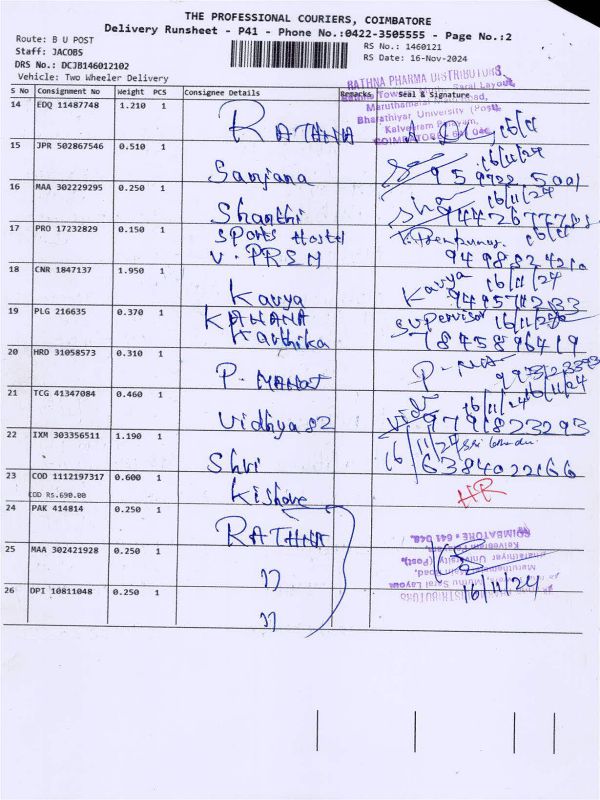 THE PROFESSIONAL COURIERS, COIMBATORE
Delivery Runsheet - P41 - Phone No.:0422-3505555 - Page No.:2
Route: B U POST
RS No.: 1460121
Staff: JACOBS
RS Date: 16-Nov-2024
DRS No.: DCJB146012102
Vehicle: Two Wheeler Delivery
RATHNA PHARMA DISTRIBUTORS
S No Consignment No Weight PCS Consignee Details Remarks Seal & Signature
14 EDQ 11487748 1.210 1 RATHNA
Bharathiyar University (Post),
16/11
15 JPR 502867546 0.510 1 Sanjana 16/11/24
16 MAA 302229295 0.250 1 Shanthi 16/11/24
17 PRO 17232829 0.150 1 Sports Hostel 16/11
V. PREM
18 CNR 1847137 1.950 1 Kavya Kavya 16/11/24
19 PLG 216635 0.370 1 KAHANA Supervisor 16/11/24
Karthika 7845896419
20 HRD 31058573 0.310 1 P. MANOJ
16/11/24
21 TCG 41347084 0.460 1 Vidhya 82 16/11/24
9791823293
22 IXM 303356511 1.190 1 Shri 16/11/24
6384022166
23 COD 1112197317 0.600 1 Kishore HR
COD Rs.690.00
24 PAK 414814 0.250 1 RATHNA
COIMBATORE - 641 046.
25 MAA 302421928 0.250 1 "
26 DPI 10811048 0.250 1 " 16/11/24